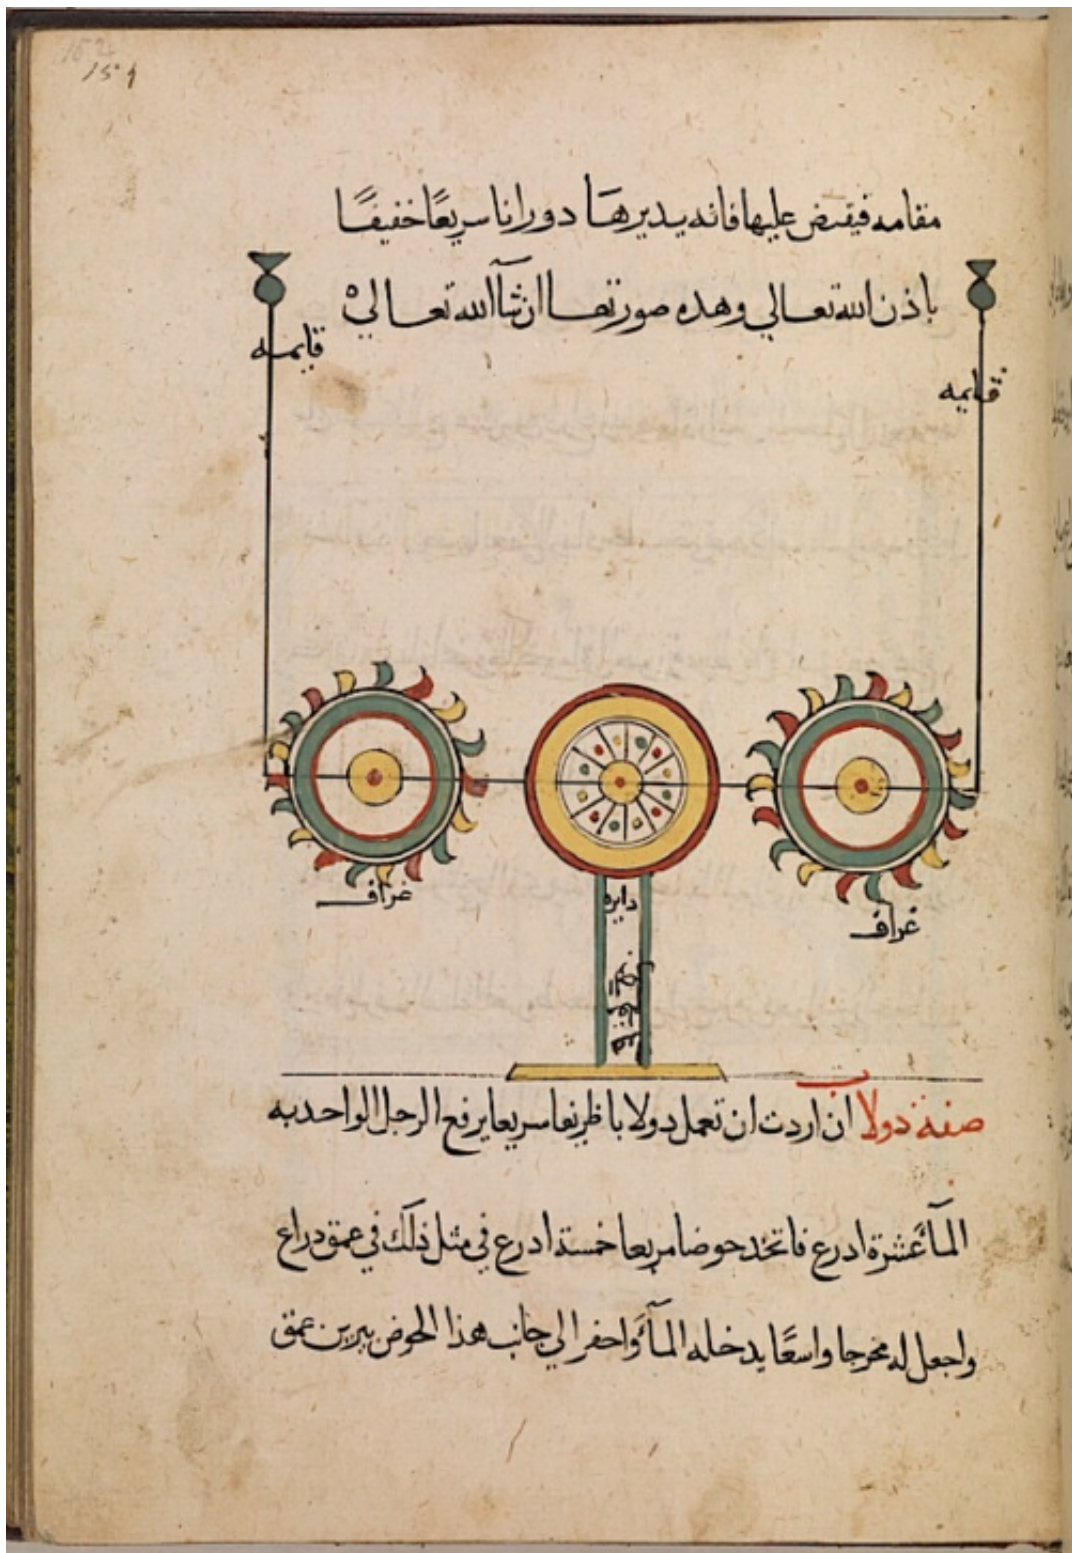 مقامه فيقبض عليها فانه يديرها دورانا سريعًا خفيفًا
باذن الله تعالي وهذه صورتها ان شآ الله تعالي
قايمه
قايمه
غراف
غراف
دايره
صفة دولاب ان اردت ان تعمل دولابا ظريفا سريعا يرفع الرجل الواحد به
المآ عشرة ادرع فاتخد حوضا مربعا خمسة ادرع في مثل ذلك في عمق دراع
واجعل له مخرجا واسعًا يدخله المآ واحفر الي جانب هذا الحوض بيرين عمق